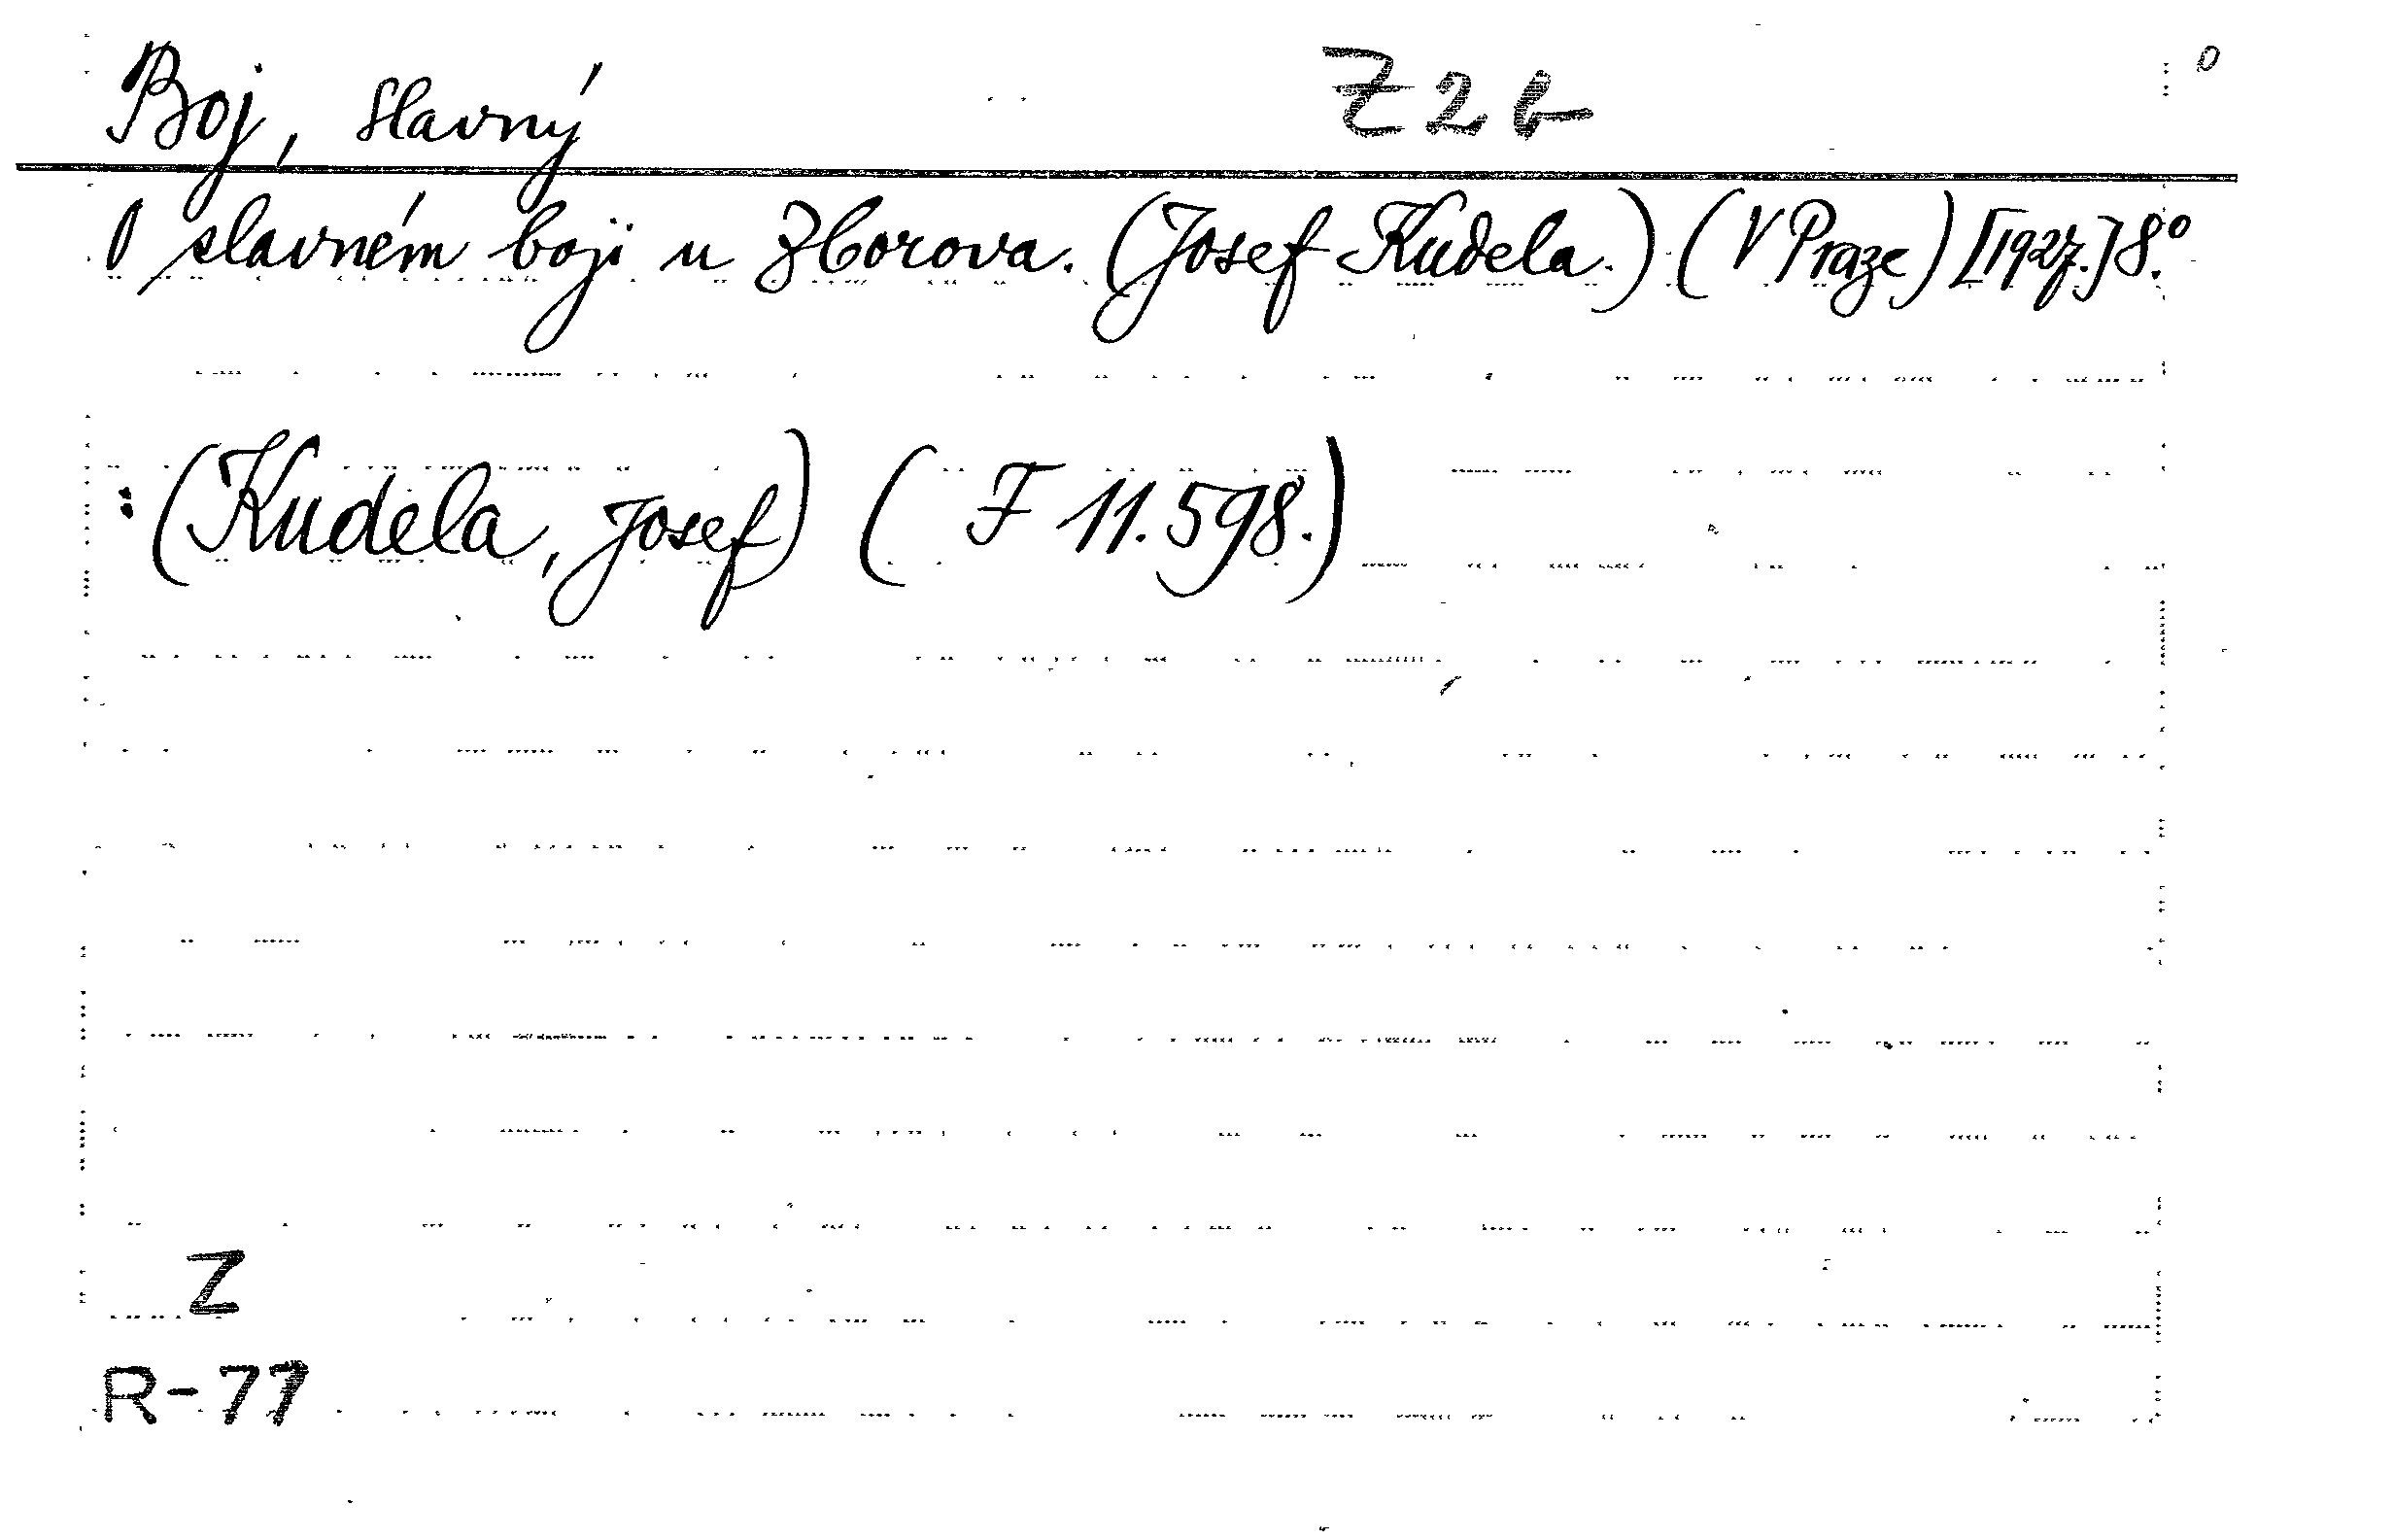 Boj, slavný Z 2 b
O slavném boji u Zborova. (Josef Kudela.) (V Praze) [1927.] 8.°
: (Kudela, Josef) (F 11.598.)
Z
R-77